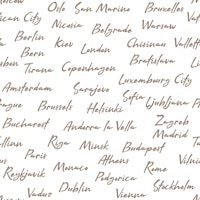 Moscow Oslo San Marino Bruxelles
Nicosia Belgrade Warsaw
Berlin Kiev London Chisinau Vallett
Bern Bratislava
Tirana Copenhagen Luxembourg City
Amsterdam Sarajevo Sofia
ague Brussels Helsinki Ljubljana P
Bucharest Andorra la Vella Zagreb
Madrid
llinn Riga Minsk Budapest
Paris Athens Rome
Reykjavik Monaco Podgorica Stockholm
Vaduz Dublin Vienna